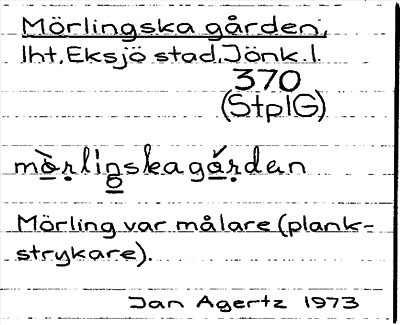 Mörlingska gården,
lht, Eksjö stad, Jönk. l.
370
(StplG)
mὼ̲ṛlin̲skagá̲ṛdɐn
Mörling var målare (plank-
strykare).
Jan Agertz 1973